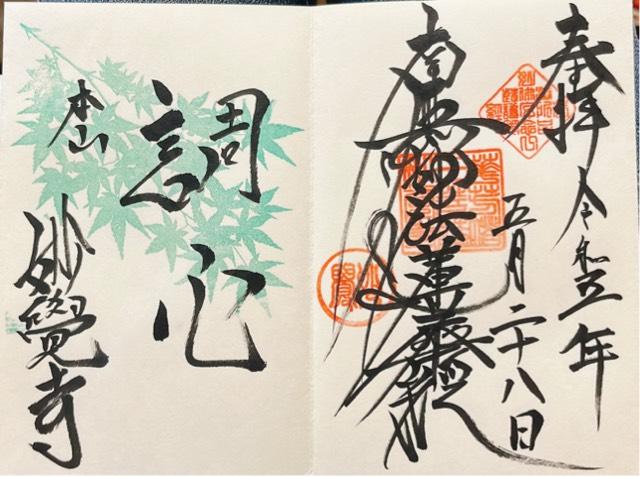 奉拝 令和五年
五月二十八日
南無妙法蓮華経
妙覺
調心
本山
妙覺寺